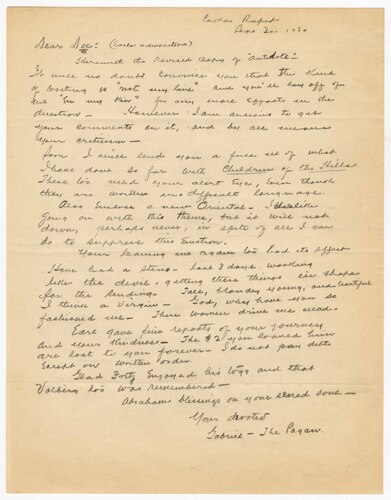 Cedar Rapids
Sept 20 - 1930
Dear Doc: (Earl's admonition)
Herewith the revised copy of "Antidote"
It will no doubt convince you that this kind
of writing is "not my line" and you'll lay off of
me "En my Kin" for any more efforts in the
direction - However I am anxious to get
your comments on it, and by all means
your criticism -
Soon I will send you a fine set of what
I have done so far with Children of the Hills
These too need your alert eye, Even though
they are written in different language.
Also Enclose a new Oriental - I dislike
going on with this theme, but it will not
down, perhaps never, in spite of all I can
do to suppress this Emotion.
Your leaving me again too had its effect
Have had a Steno - last 3 days, working
like the devil, getting these things in shape
for the sending. Tall, blonde, young, and beautiful
I think a Virgin - God, why have you so
fashioned me - These women drive me mad.
Earl gave fine reports of your journey
and your kindness - The #2 you loaned him
are lost to you forever - I do not pay debts
Except on written order
Glad Fritz Enjoyed his togs and that
Volberg too was remembered -
Abrahams blessings on your sacred bone -
Your devoted
Gabriel - The Pagan.